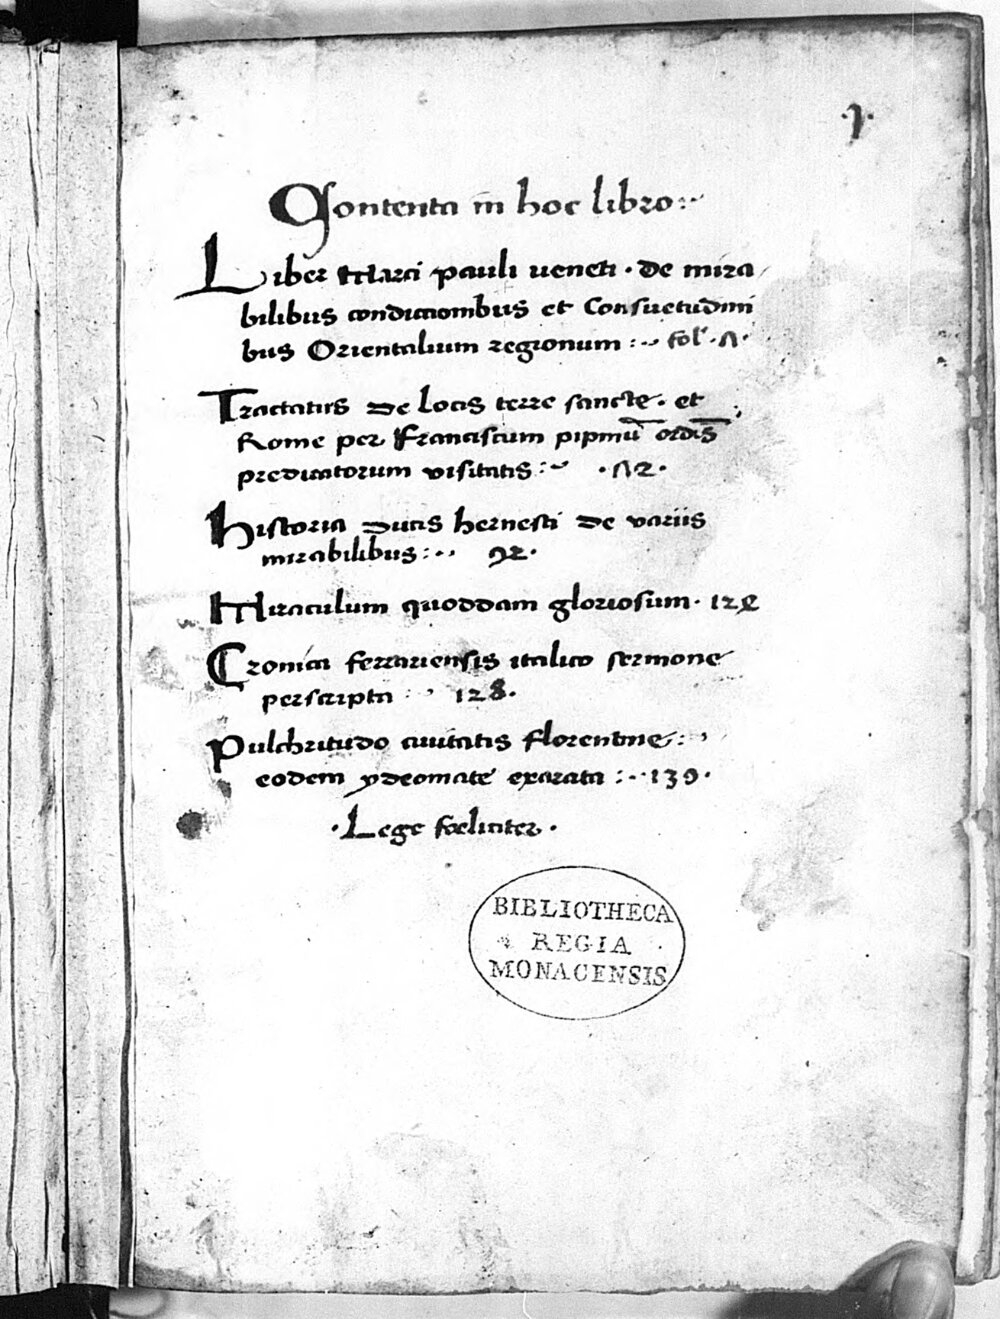 ·1·
Contenta in hoc libro :~
Liber Marci pauli ueneti · de mira
bilibus condicionibus et Consuetudini
bus Orientalium regionum :~ fol' ·Λ·
Tractatus de locis terre sancte · et
Rome per Franciscum pipinū ordīs
predicatorum visitatis :~ ·Λ2·
Historia ducis hernesti de variis
mirabilibus :·· 92·
Miraculum quoddam gloriosum ·
Cronica ferrariensis italico sermone
perscripta : ~ 128·
Pulchritudo ciuitatis florentine :~
eodem ydeomate exarata :·· 139·
·Lege foeliciter·
BIBLIOTHECA
REGIA
MONACENSIS